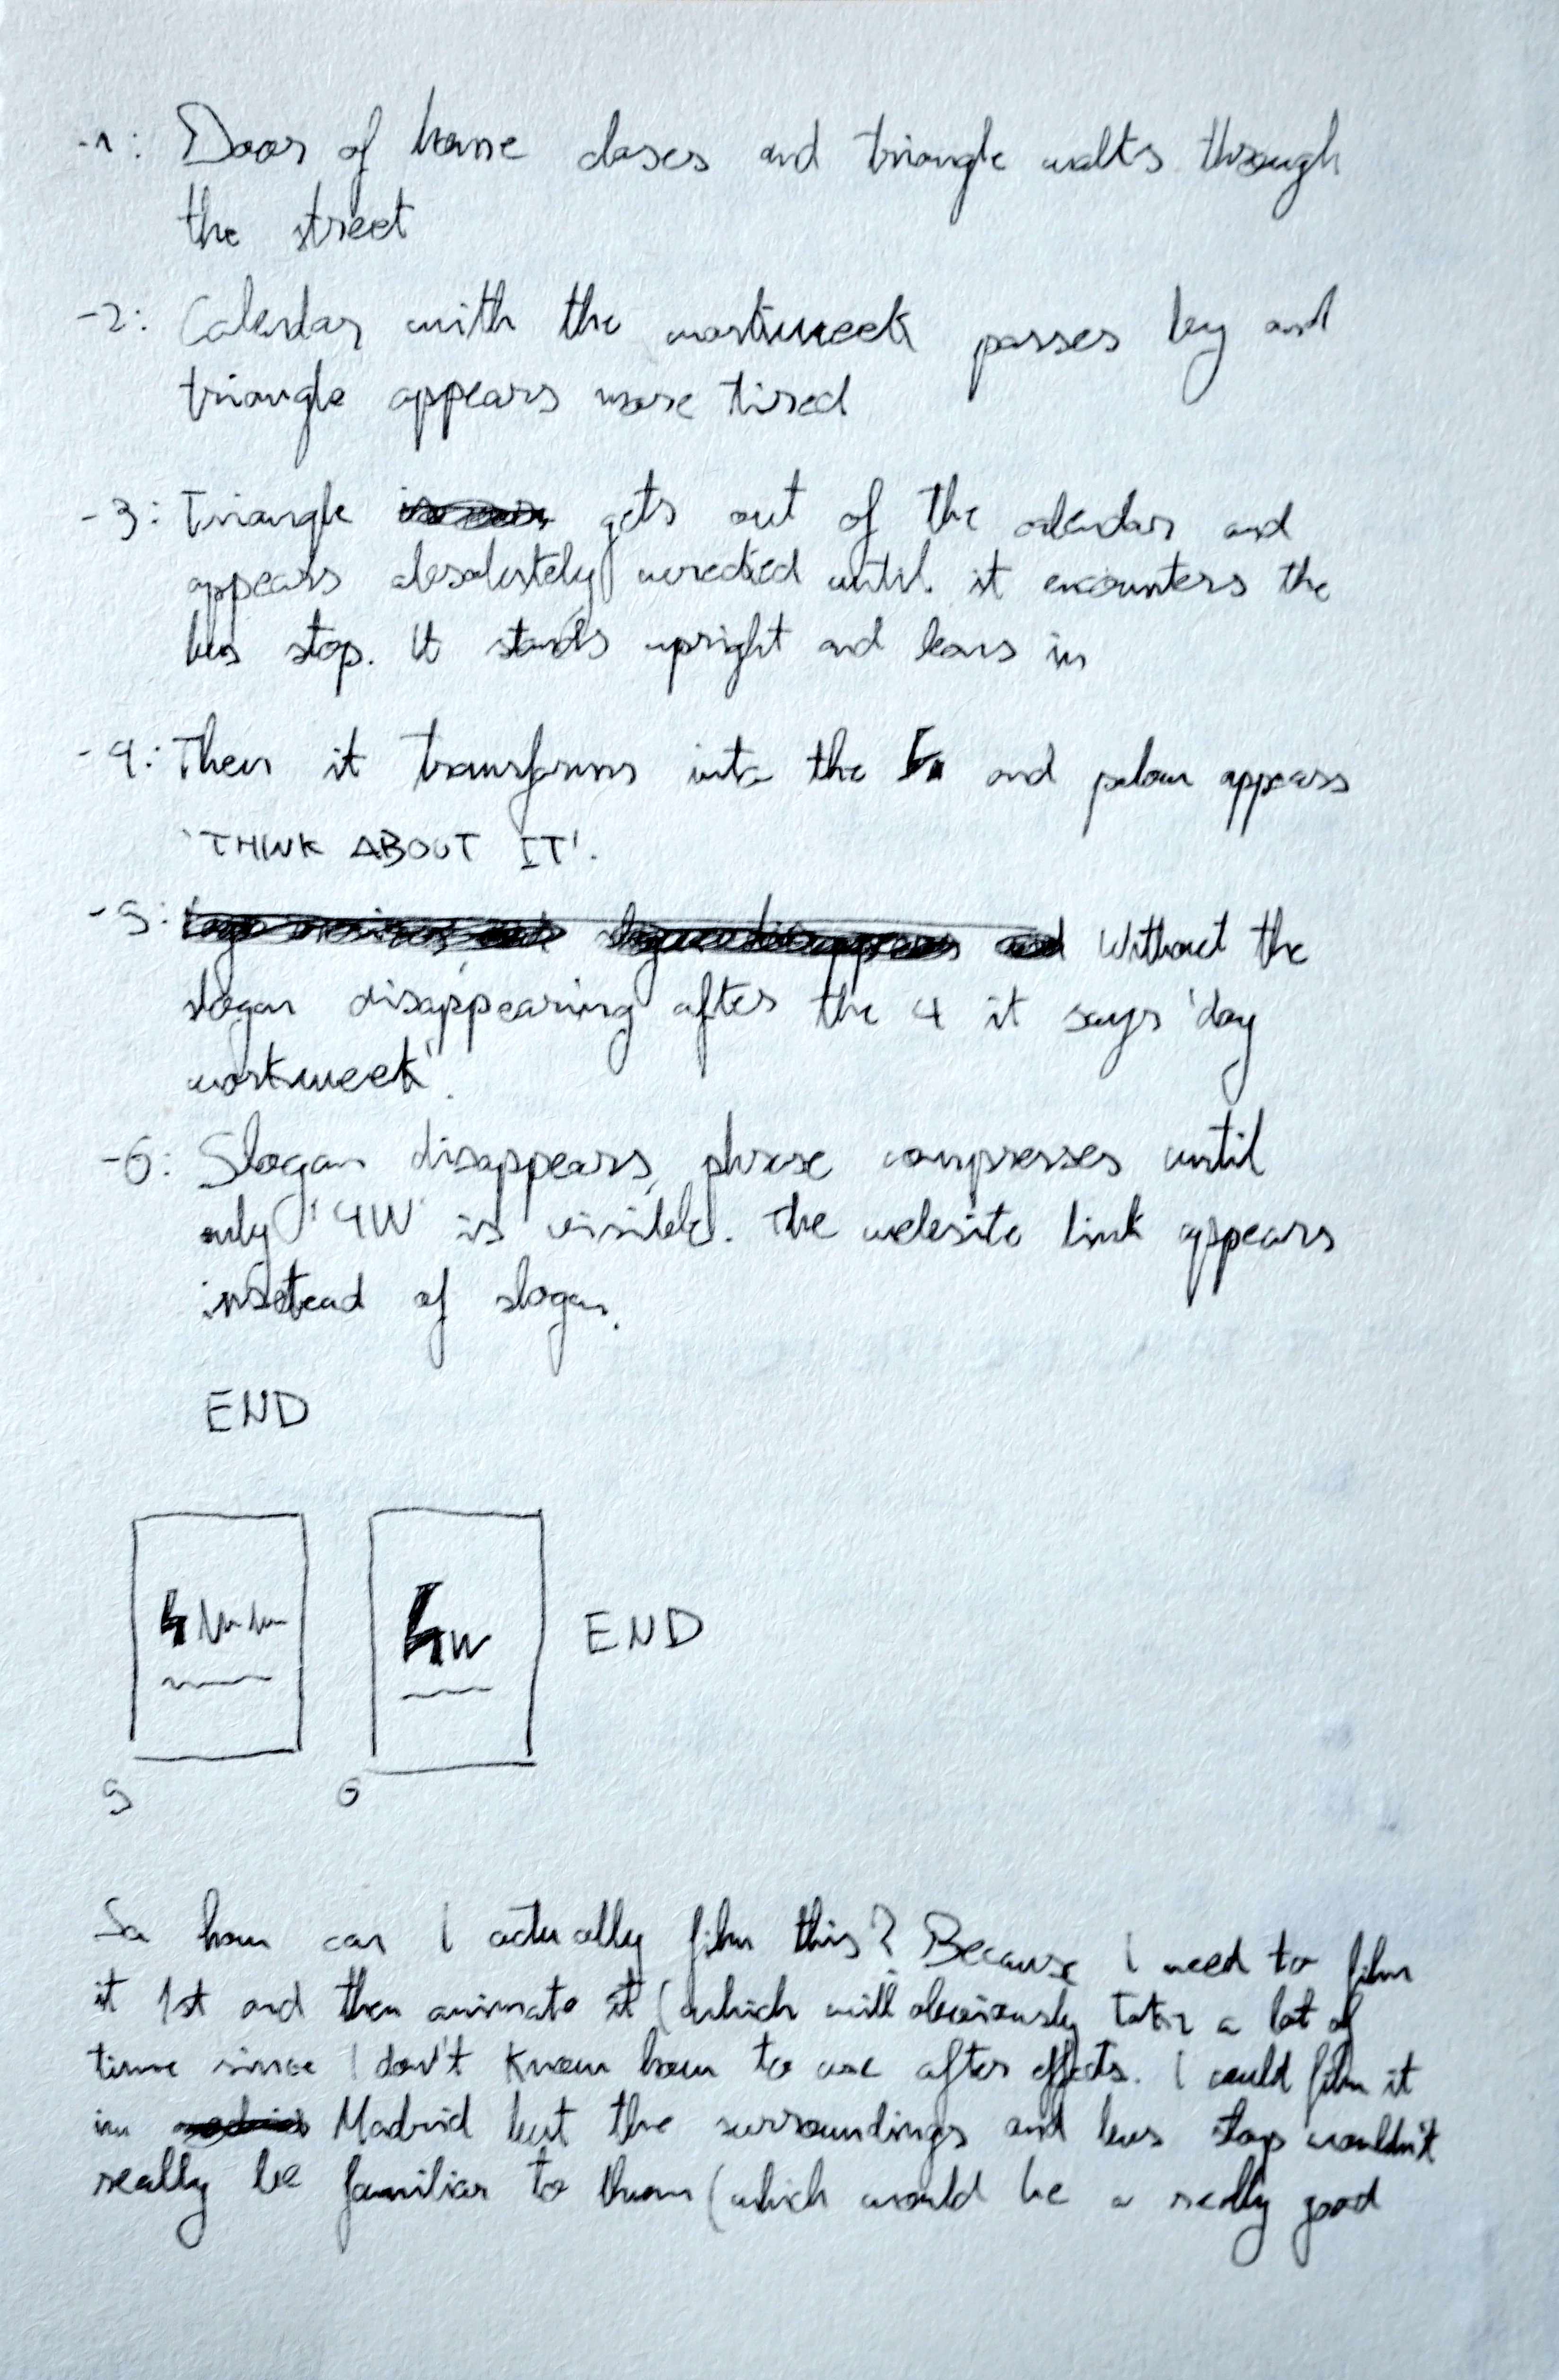 -1: Door of home closes and triangle walks through
the street
-2: Calendar with the workweek passes by and
triangle appears more tired
-3: Triangle gets out of the calendar and
appears absolutely wrecked until it encounters the
bus stop. It stands upright and leans in
-4: Then it transforms into the 4 and below appears
'THINK ABOUT IT'.
-5: Without the
slogan disappearing after the 4 it says 'day
workweek'.
-6: Slogan disappears, phrase compresses until
only '4W' is visible. The website link appears
instead of slogan.
END
4
4W
END
5
6
So how can I actually film this? Because I need to film
it 1st and then animate it (which will obviously take a lot of
time since I don't know how to use after effects. I could film it
in Madrid but the surroundings and bus stop wouldn't
really be familiar to them (which would be a really good